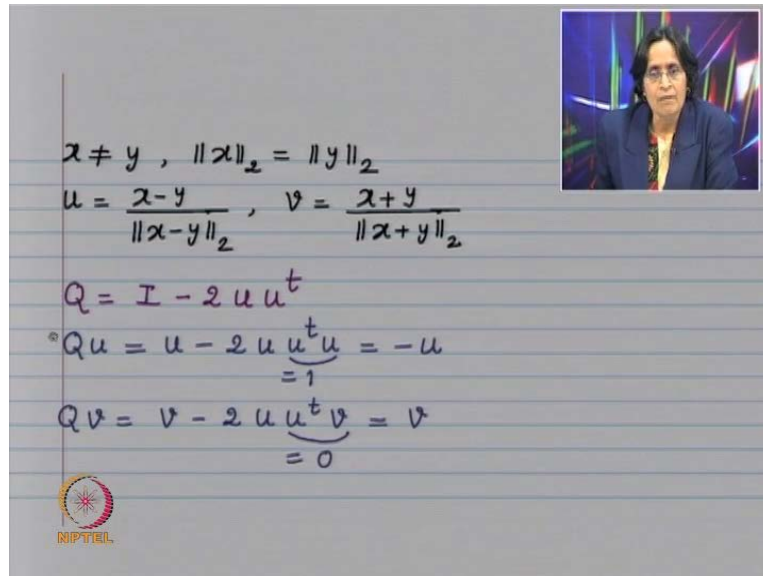 x ≠ y , ||x||₂ = ||y||₂
u = x-y / ||x-y||₂ , v = x+y / ||x+y||₂
Q = I - 2 u uᵗ
Qu = u - 2 u uᵗ u = -u
= 1
Qv = v - 2 u uᵗ v = v
= 0
NPTEL